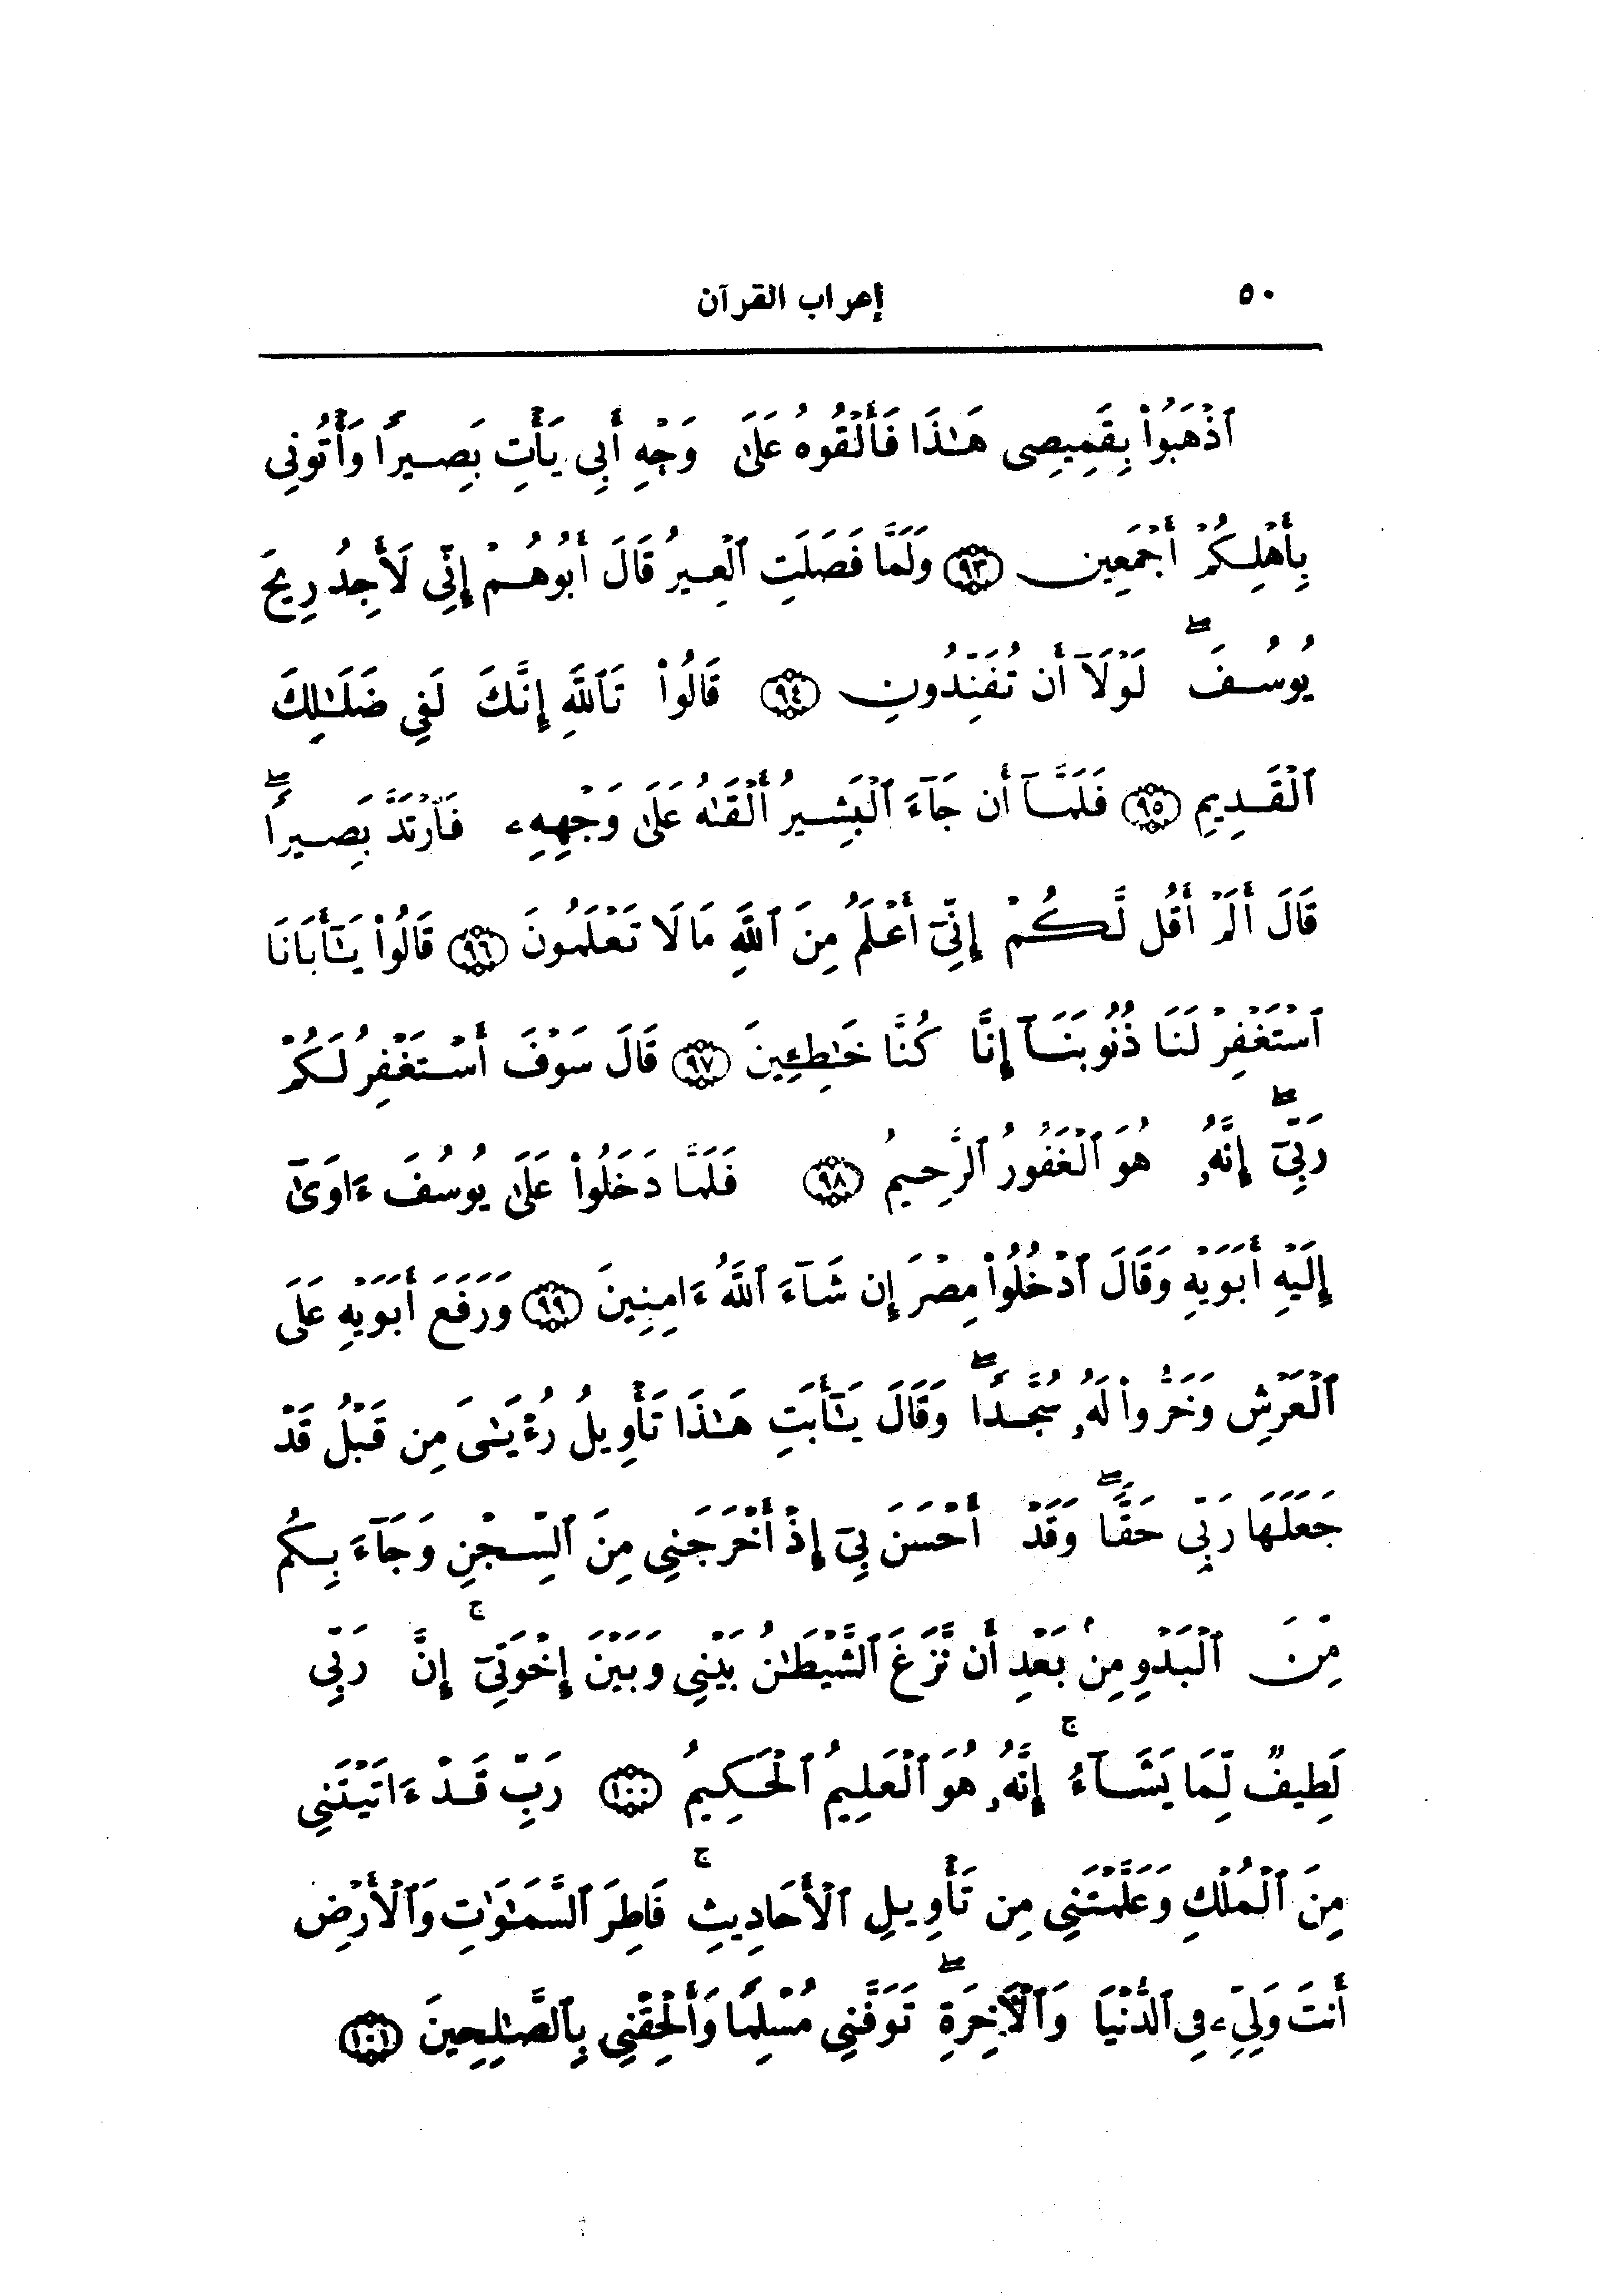 ٥٠ إعراب القرآن
ٱذْهَبُوا۟ بِقَمِيصِى هَـٰذَا فَأَلْقُوهُ عَلَىٰ وَجْهِ أَبِى يَأْتِ بَصِيرًا وَأْتُونِى
بِأَهْلِكُمْ أَجْمَعِينَ ﴿٩٣﴾ وَلَمَّا فَصَلَتِ ٱلْعِيرُ قَالَ أَبُوهُمْ إِنِّى لَأَجِدُ رِيحَ
يُوسُفَ ۖ لَوْلَآ أَن تُفَنِّدُونِ ﴿٩٤﴾ قَالُوا۟ تَٱللَّهِ إِنَّكَ لَفِى ضَلَـٰلِكَ
ٱلْقَدِيمِ ﴿٩٥﴾ فَلَمَّآ أَن جَآءَ ٱلْبَشِيرُ أَلْقَىٰهُ عَلَىٰ وَجْهِهِۦ فَٱرْتَدَّ بَصِيرًا ۖ
قَالَ أَلَمْ أَقُل لَّكُمْ إِنِّىٓ أَعْلَمُ مِنَ ٱللَّهِ مَا لَا تَعْلَمُونَ ﴿٩٦﴾ قَالُوا۟ يَـٰٓأَبَانَا
ٱسْتَغْفِرْ لَنَا ذُنُوبَنَآ إِنَّا كُنَّا خَـٰطِـِٔينَ ﴿٩٧﴾ قَالَ سَوْفَ أَسْتَغْفِرُ لَكُمْ
رَبِّىٓ ۖ إِنَّهُۥ هُوَ ٱلْغَفُورُ ٱلرَّحِيمُ ﴿٩٨﴾ فَلَمَّا دَخَلُوا۟ عَلَىٰ يُوسُفَ ءَاوَىٰٓ
إِلَيْهِ أَبَوَيْهِ وَقَالَ ٱدْخُلُوا۟ مِصْرَ إِن شَآءَ ٱللَّهُ ءَامِنِينَ ﴿٩٩﴾ وَرَفَعَ أَبَوَيْهِ عَلَى
ٱلْعَرْشِ وَخَرُّوا۟ لَهُۥ سُجَّدًا ۖ وَقَالَ يَـٰٓأَبَتِ هَـٰذَا تَأْوِيلُ رُءْيَـٰىَ مِن قَبْلُ قَدْ
جَعَلَهَا رَبِّى حَقًّا ۖ وَقَدْ أَحْسَنَ بِىٓ إِذْ أَخْرَجَنِى مِنَ ٱلسِّجْنِ وَجَآءَ بِكُم
مِّنَ ٱلْبَدْوِ مِنۢ بَعْدِ أَن نَّزَغَ ٱلشَّيْطَـٰنُ بَيْنِى وَبَيْنَ إِخْوَتِىٓ ۚ إِنَّ رَبِّى
لَطِيفٌ لِّمَا يَشَآءُ ۚ إِنَّهُۥ هُوَ ٱلْعَلِيمُ ٱلْحَكِيمُ ﴿١٠٠﴾ رَبِّ قَدْ ءَاتَيْتَنِى
مِنَ ٱلْمُلْكِ وَعَلَّمْتَنِى مِن تَأْوِيلِ ٱلْأَحَادِيثِ ۚ فَاطِرَ ٱلسَّمَـٰوَٰتِ وَٱلْأَرْضِ
أَنتَ وَلِىِّۦ فِى ٱلدُّنْيَا وَٱلْـَٔاخِرَةِ ۖ تَوَفَّنِى مُسْلِمًا وَأَلْحِقْنِى بِٱلصَّـٰلِحِينَ ﴿١٠١﴾